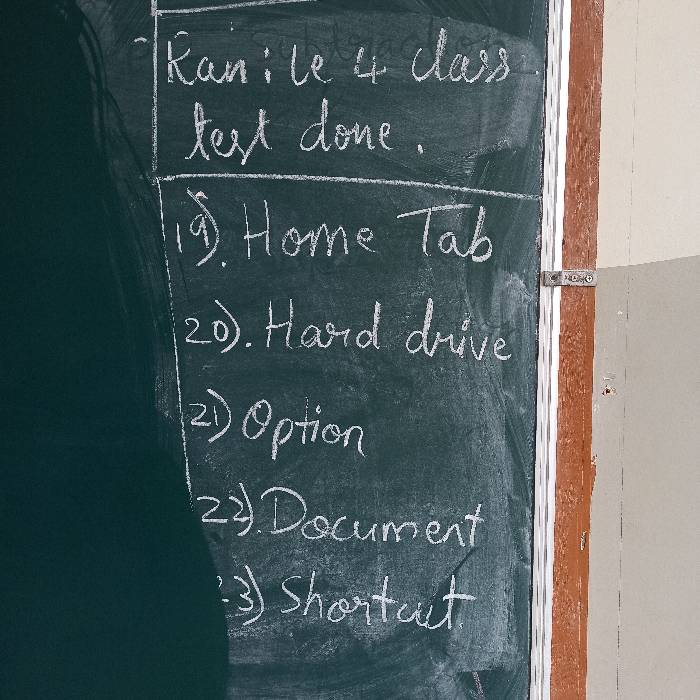 Ran: le 4 class
test done.
19). Home Tab
20). Hard drive
21) Option
22). Document
23) Shortcut.